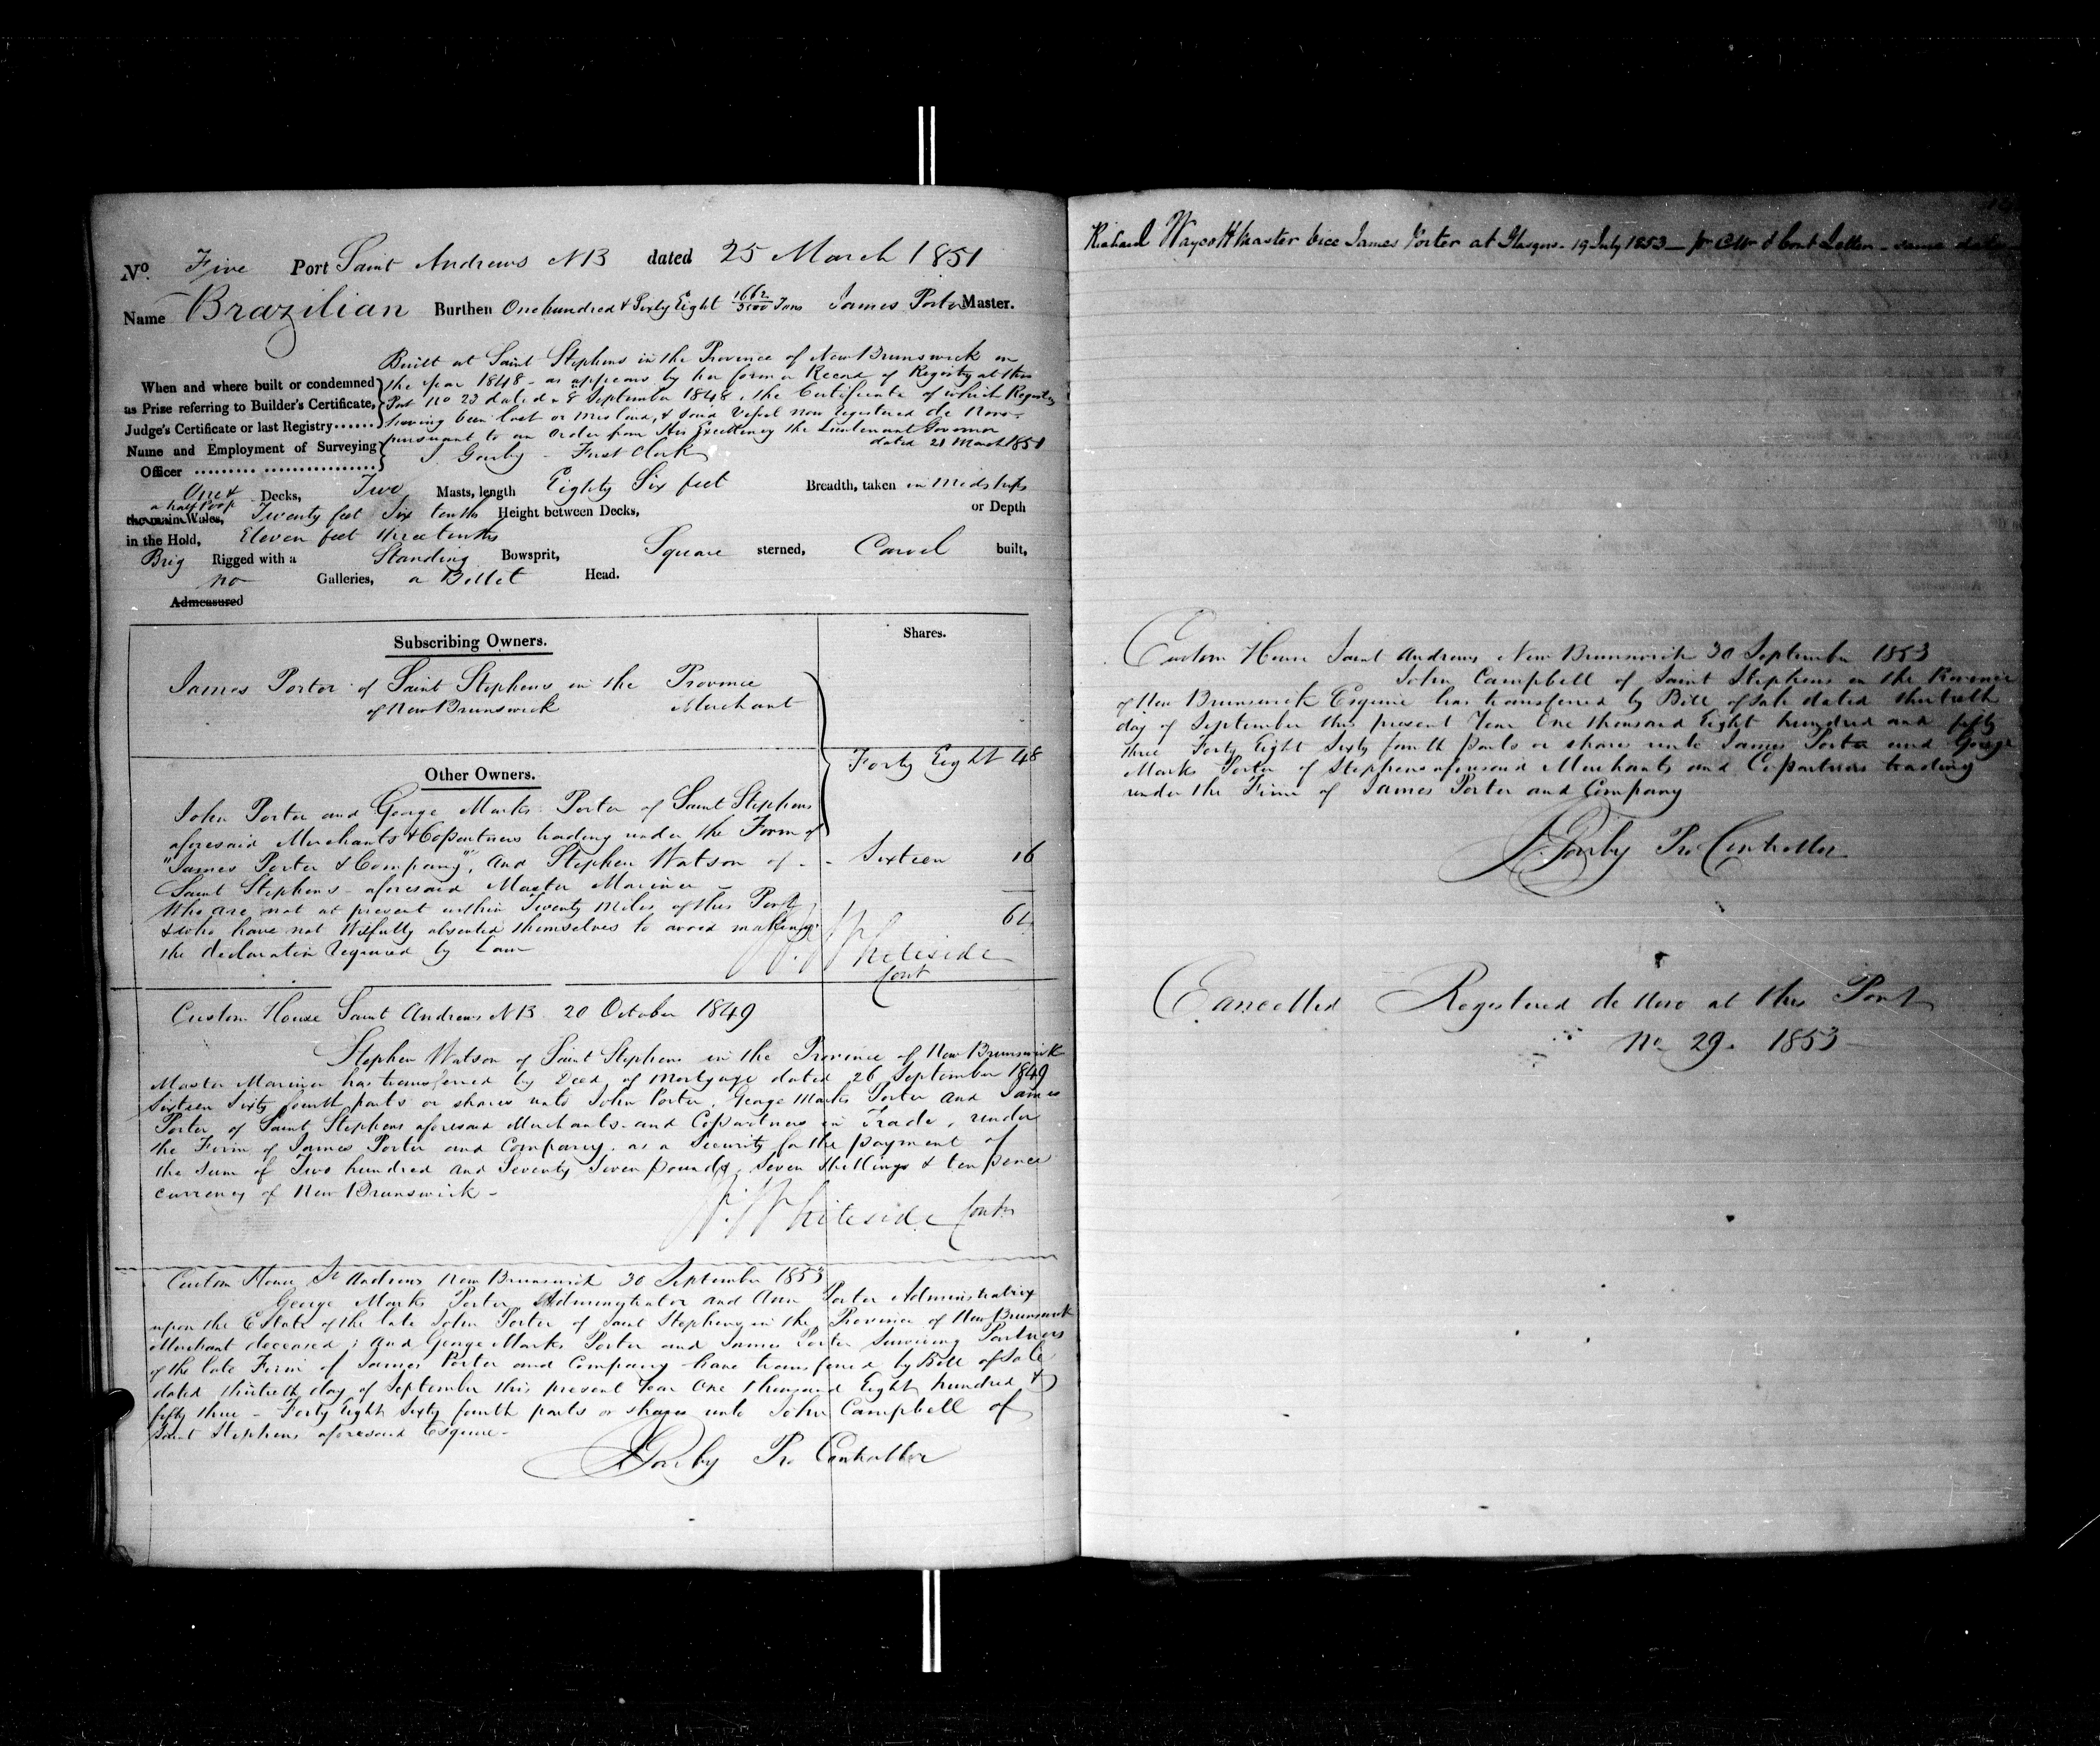 No. Five Port Saint Andrews NB dated 25 March 1851
Name Brazilian Burthen One hundred & Sixty Eight 1662/3500 Tons James Porter Master.
Built at Saint Stephens in the Province of New Brunswick in
When and where built or condemned the year 1848 - as appears by her former Record of Registry at this
as Prize referring to Builder's Certificate, Port No 23 dated 8 September 1848, the Certificate of which Registry
Judge's Certificate or last Registry...... having been lost or mislaid, & said Vessel now registered de Novo -
pursuant to an order from His Excellency the Lieutenant Governor
Name and Employment of Surveying dated 21 March 1851
Officer ......... ................ Gowby - First Clerk
One & Decks, Two Masts, length Eighty Six feet Breadth, taken in Midships
a half Poop
the main Wales, Twenty feet Six tenths Height between Decks, or Depth
in the Hold, Eleven feet three tenths
Brig Rigged with a Standing Bowsprit, Square sterned, Carvel built,
no Galleries, a Billet Head.
Admeasured
Subscribing Owners. Shares.
James Porter of Saint Stephens in the Province
of New Brunswick Merchant
Forty Eight 48
Other Owners.
John Porter and George Marks Porter of Saint Stephens
aforesaid Merchants & Copartners trading under the Firm of
"James Porter & Company", and Stephen Watson of - - Sixteen 16
Saint Stephens - aforesaid Master Mariner -
Who are not at present within Twenty Miles of this Port 64
& who have not Wilfully absented themselves to avoid making
the declaration required by Law
Whiteside
Cont
Custom House Saint Andrews NB 20 October 1849
Stephen Watson of Saint Stephens in the Province of New Brunswick
Master Mariner has transferred by Deed of Mortgage dated 26 September 1849
Sixteen Sixty fourth parts or shares unto John Porter, George Marks Porter and James
Porter of Saint Stephens aforesaid Merchants and Copartners in Trade, under
the Firm of James Porter and Company, as a Security for the payment of
the sum of Two hundred and Seventy Seven pounds, Seven shillings & ten pence
currency of New Brunswick -
Whiteside Contr
Custom House St Andrews New Brunswick 30 September 1853
George Marks Porter Administrator and Ann Porter Administratrix
upon the Estate of the late John Porter of Saint Stephens in the Province of New Brunswick
Merchant deceased; and George Marks Porter and James Porter Surviving Partners
of the late Firm of James Porter and Company have transferred by Bill of Sale
dated thirtieth day of September this present Year One thousand Eight hundred &
fifty three - Forty Eight Sixty fourth parts or shares unto John Campbell of
Saint Stephens aforesaid Esquire -
Gowby Pro Controller
Richard Waycott Master vice James Porter at Glasgow - 19 July 1853 - pr Collr & Cont Letter - same date
Custom House Saint Andrews New Brunswick 30 September 1853
John Campbell of Saint Stephens in the Province
of New Brunswick Esquire has transferred by Bill of Sale dated thirtieth
day of September this present Year One thousand Eight hundred and fifty
three Forty Eight Sixty fourth parts or shares unto James Porter and George
Marks Porter of Stephens aforesaid Merchants and Copartners trading
under the Firm of James Porter and Company
Gowby Pro Controller
Cancelled Registered de Novo at this Port
No 29. 1853